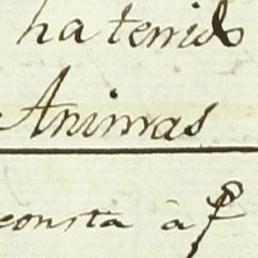 ha tenido
Animas
consta à f